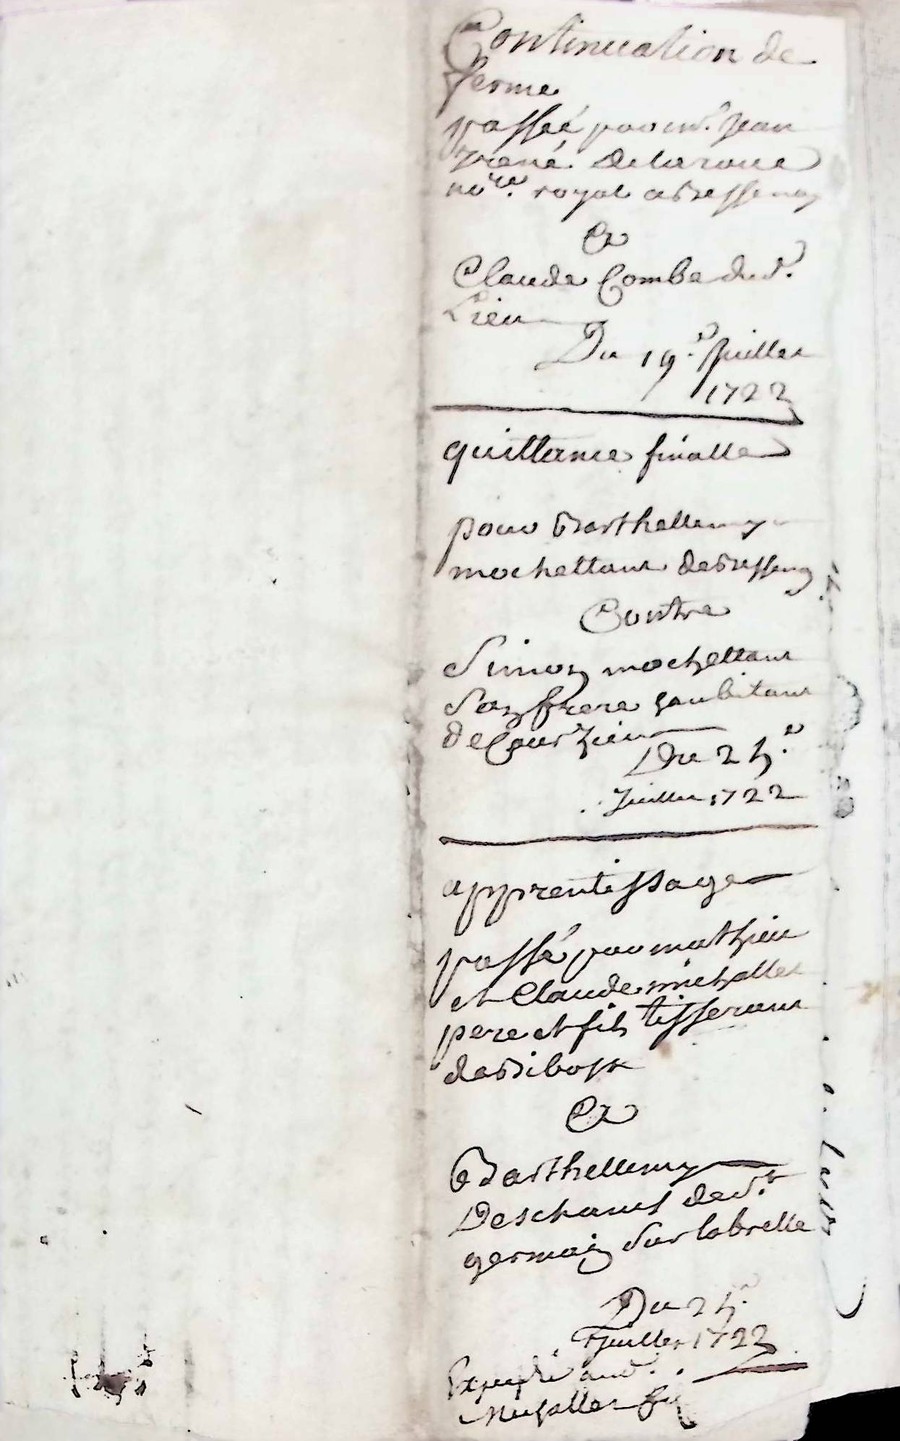 Continuation de
ferme
passée par mr. Jean
René Delaroue
nore. royal a Bessenay
Et
Claude Combe dud.
Lieu
Du 19e. Juillet
1722
quittance finalle
pour Barthellemy
mochettant de Bessenay
Contre
Simon mochettant
Son frere habitant
de Courzieu
Du 25e.
Juillet 1722
apprentissage
passé par mathieu
et Claude michallet
pere et fils tisserant
de Bibost
Et
Barthellemy
Deschamt de St
germain Sur labrelle
Du 25e.
Juillet 1722
Expedié aud.
Michallet fils